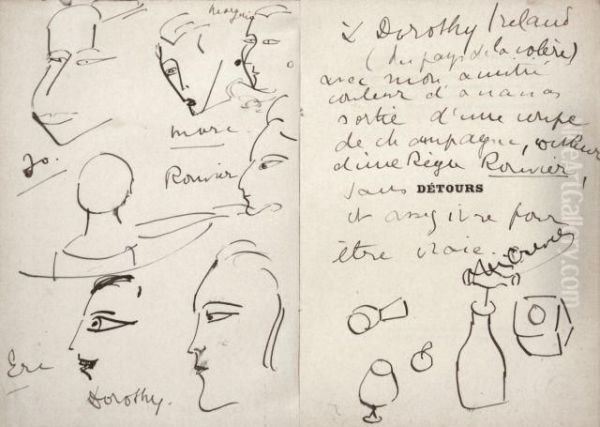 Marc.
Jo.
Rouvier
Eri
Dorothy.
à Dorothy Ireland
(du pays de la colère)
avec mon amitié
couleur d'ananas
sortie d'une coupe
de champagne,
d'une Régie Rouvier,
sans DÉTOURS
et assez ivre pour
être vraie.